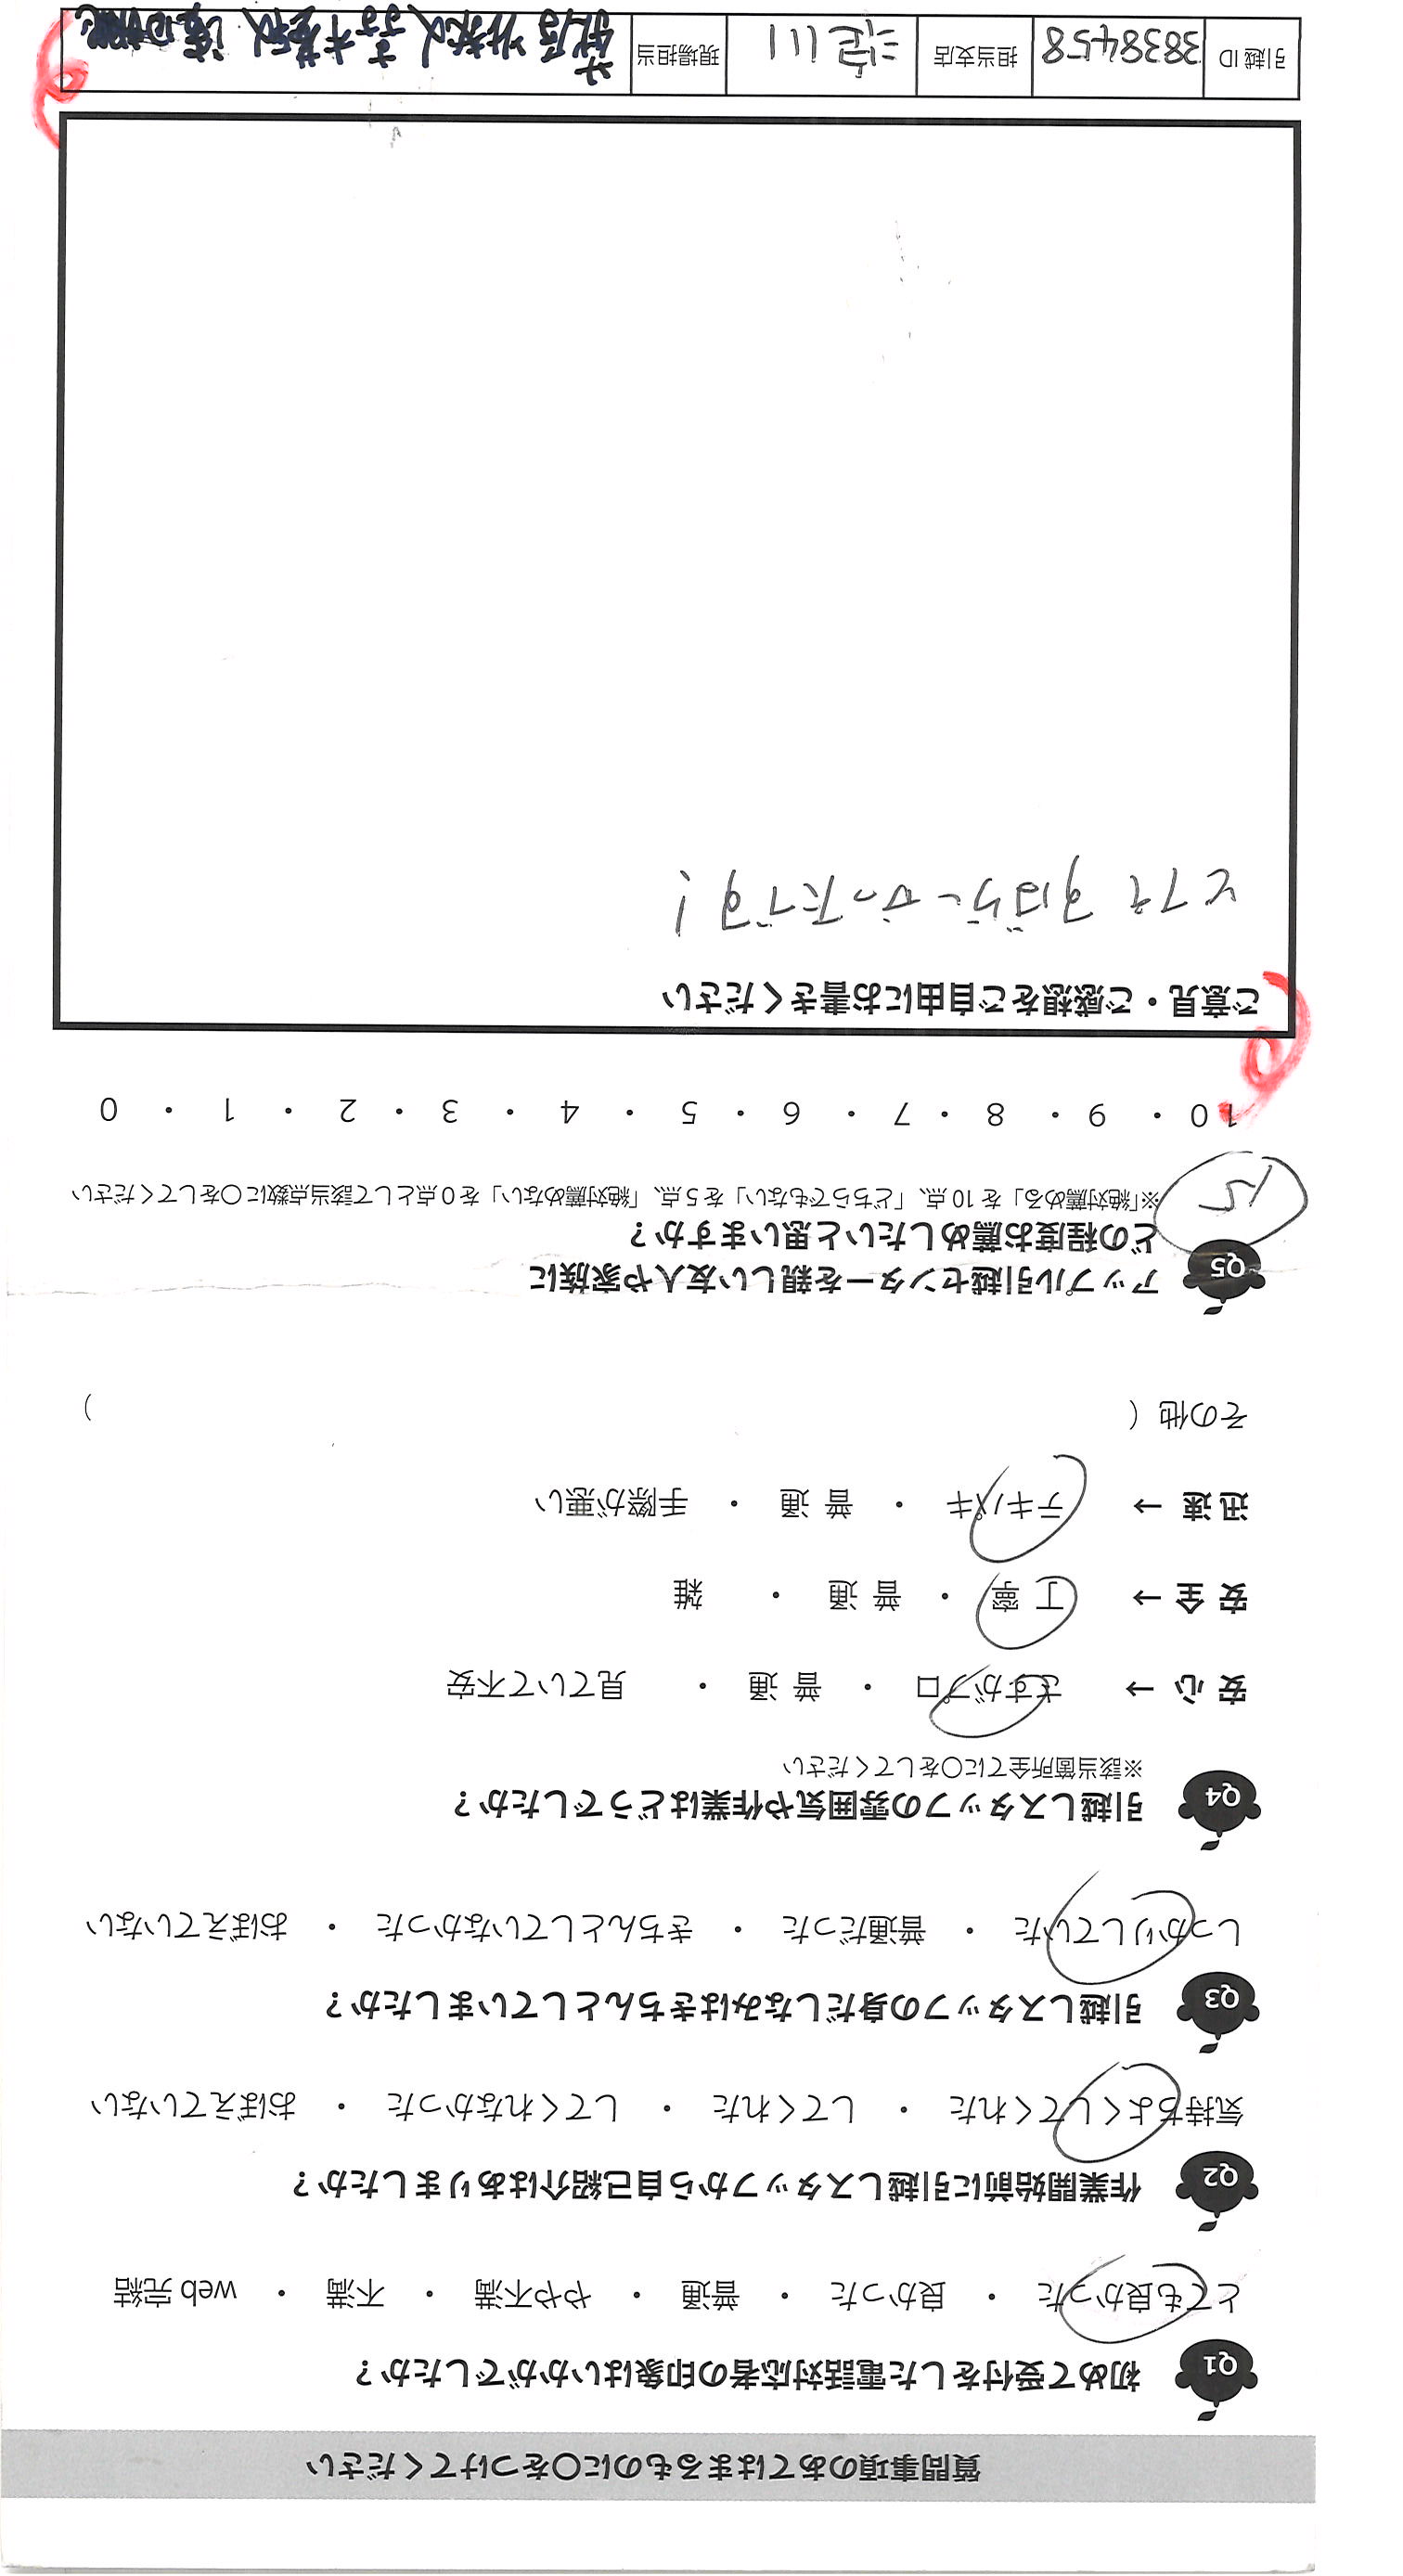 質問事項のあてはまるものに〇をつけてください
Q1 初めて受付をした電話対応者の印象はいかがでしたか？
とても良かった ・ 良かった ・ 普通 ・ やや不満 ・ 不満 ・ web 完結
Q2 作業開始前に引越しスタッフから自己紹介はありましたか？
気持ちよくしてくれた ・ してくれた ・ してくれなかった ・ おぼえていない
Q3 引越しスタッフの身だしなみはきちんとしていましたか？
しっかりしていた ・ 普通だった ・ きちんとしていなかった ・ おぼえていない
Q4 引越しスタッフの雰囲気や作業はどうでしたか？
※該当箇所全てに〇をしてください
安 心 → さすがプロ ・ 普 通 ・ 見ていて不安
安 全 → 丁 寧 ・ 普 通 ・ 雑
迅 速 → テキパキ ・ 普 通 ・ 手際が悪い
その他（ ）
Q5 アップル引越センターを親しい友人や家族に
どの程度お薦めしたいと思いますか？
15
※「絶対薦める」を 10 点、「どちらでもない」を 5 点、「絶対薦めない」を 0 点として該当点数に〇をしてください
10 ・ 9 ・ 8 ・ 7 ・ 6 ・ 5 ・ 4 ・ 3 ・ 2 ・ 1 ・ 0
ご意見・ご感想をご自由にお書きください
とても すばらしかったです！
引越 ID 3838458 担当支店 淀川 現場担当